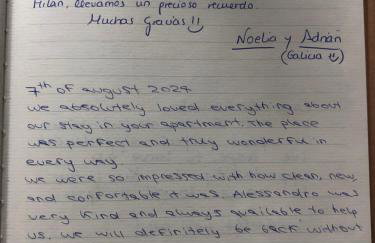 Milan, llevamos un precioso recuerdo.
Muchas Gracias!!
Noelia y Adrián
(Galicia !!)
7th of august 2024
we absolutely loved everything about
our stay in your apartment. The place
was perfect and truly wonderful in
every way
we were so impressed with how clean, new,
and confortable it was. Alessandro was
very kind and always available to help
us. we will definitely be back without